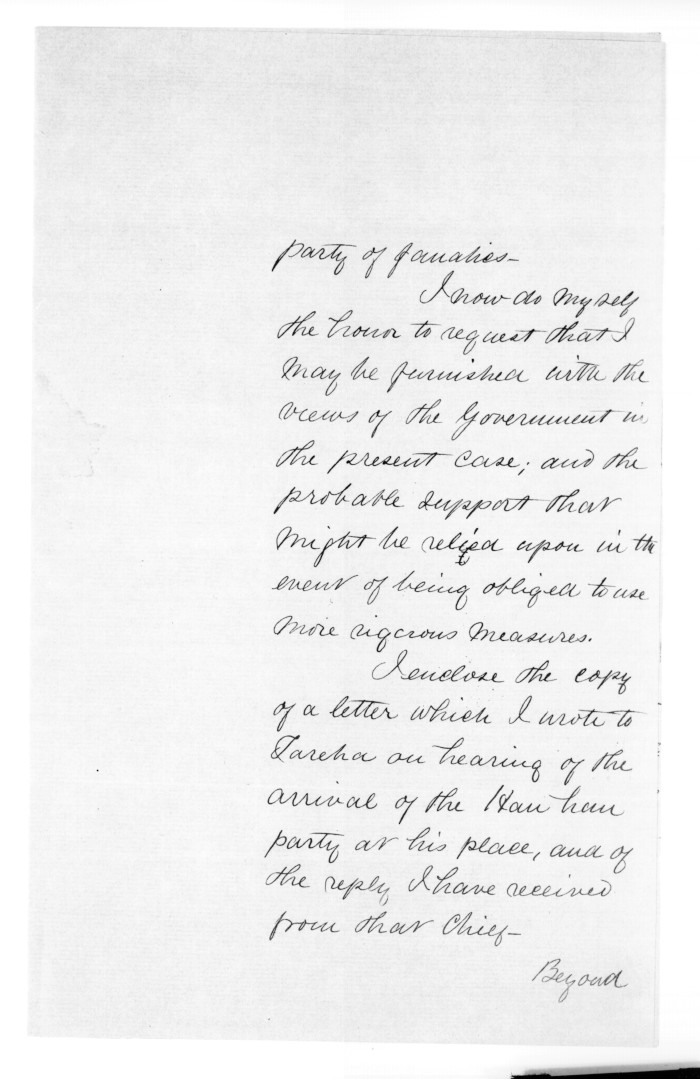 party of fanatics-
I now do myself
the honor to request that I
may be furnished with the
views of the Government in
the present case; and the
probable support that
might be relied upon in the
event of being obliged to use
more rigorous measures.
I enclose the copy
of a letter which I wrote to
Tareha on hearing of the
arrival of the Hau hau
party at his place, and of
the reply I have received
from that Chief-
Beyond